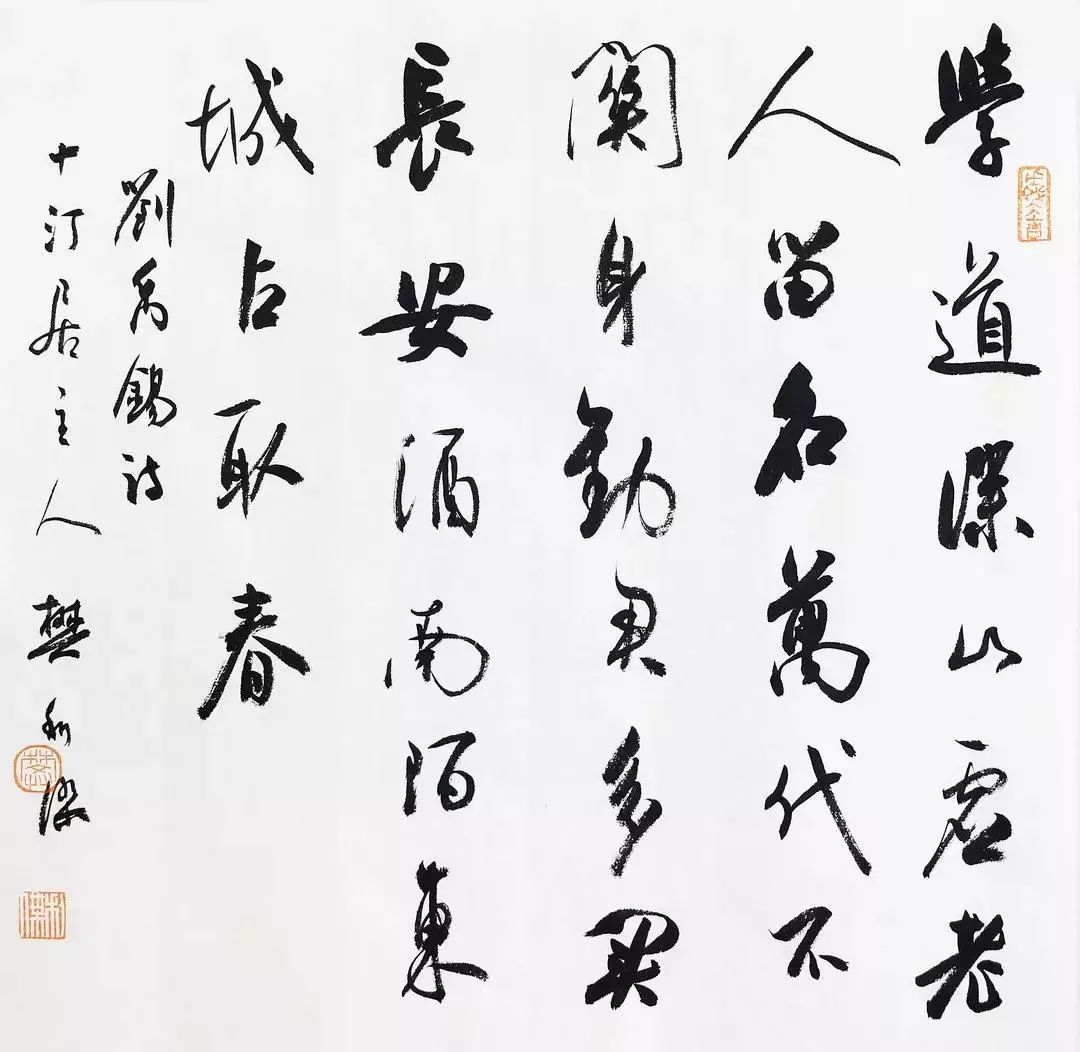 學道深山虛老
人留名萬代不
關身勸君多買
長安酒南陌東
城占取春
劉禹錫詩
十汀居主人樊利傑